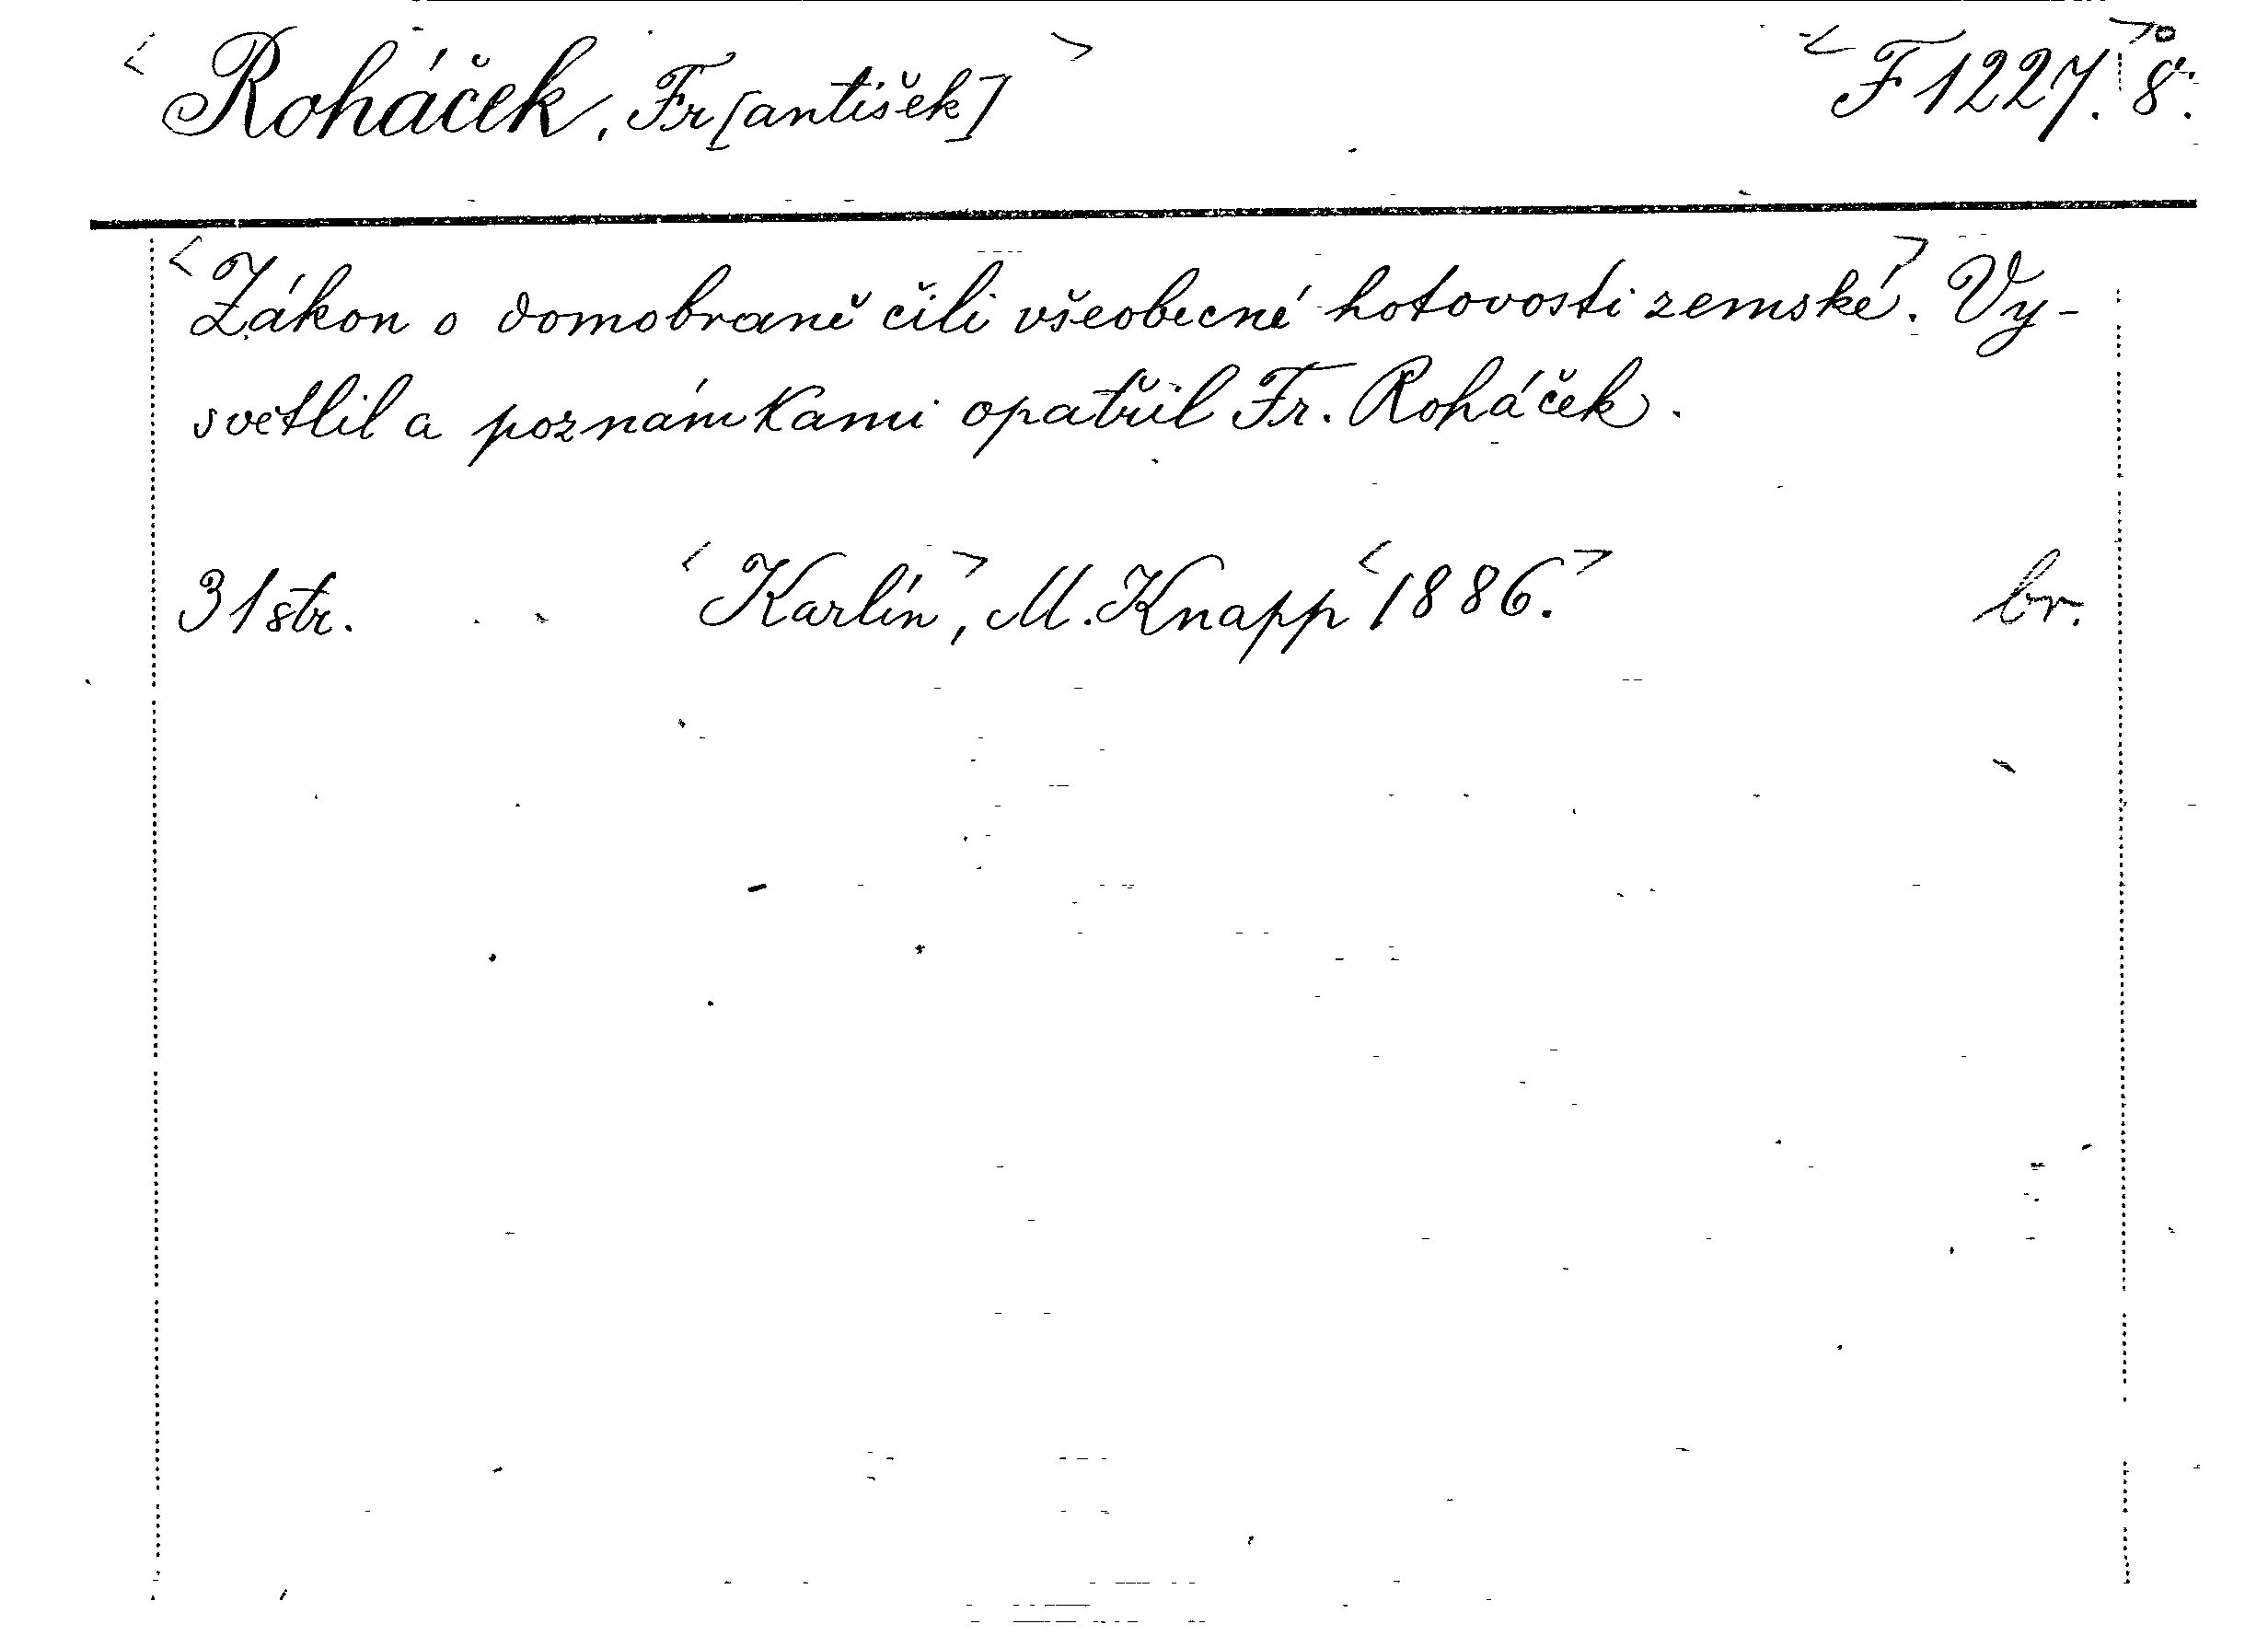 <Roháček, Fr[antišek]> <F 1227.> 8°.
<Zákon o domobraně čili všeobecné hotovosti zemské>. Vy-
světlil a poznámkami opatřil Fr. Roháček.
31 str. <Karlín>, M. Knapp <1886.> br.